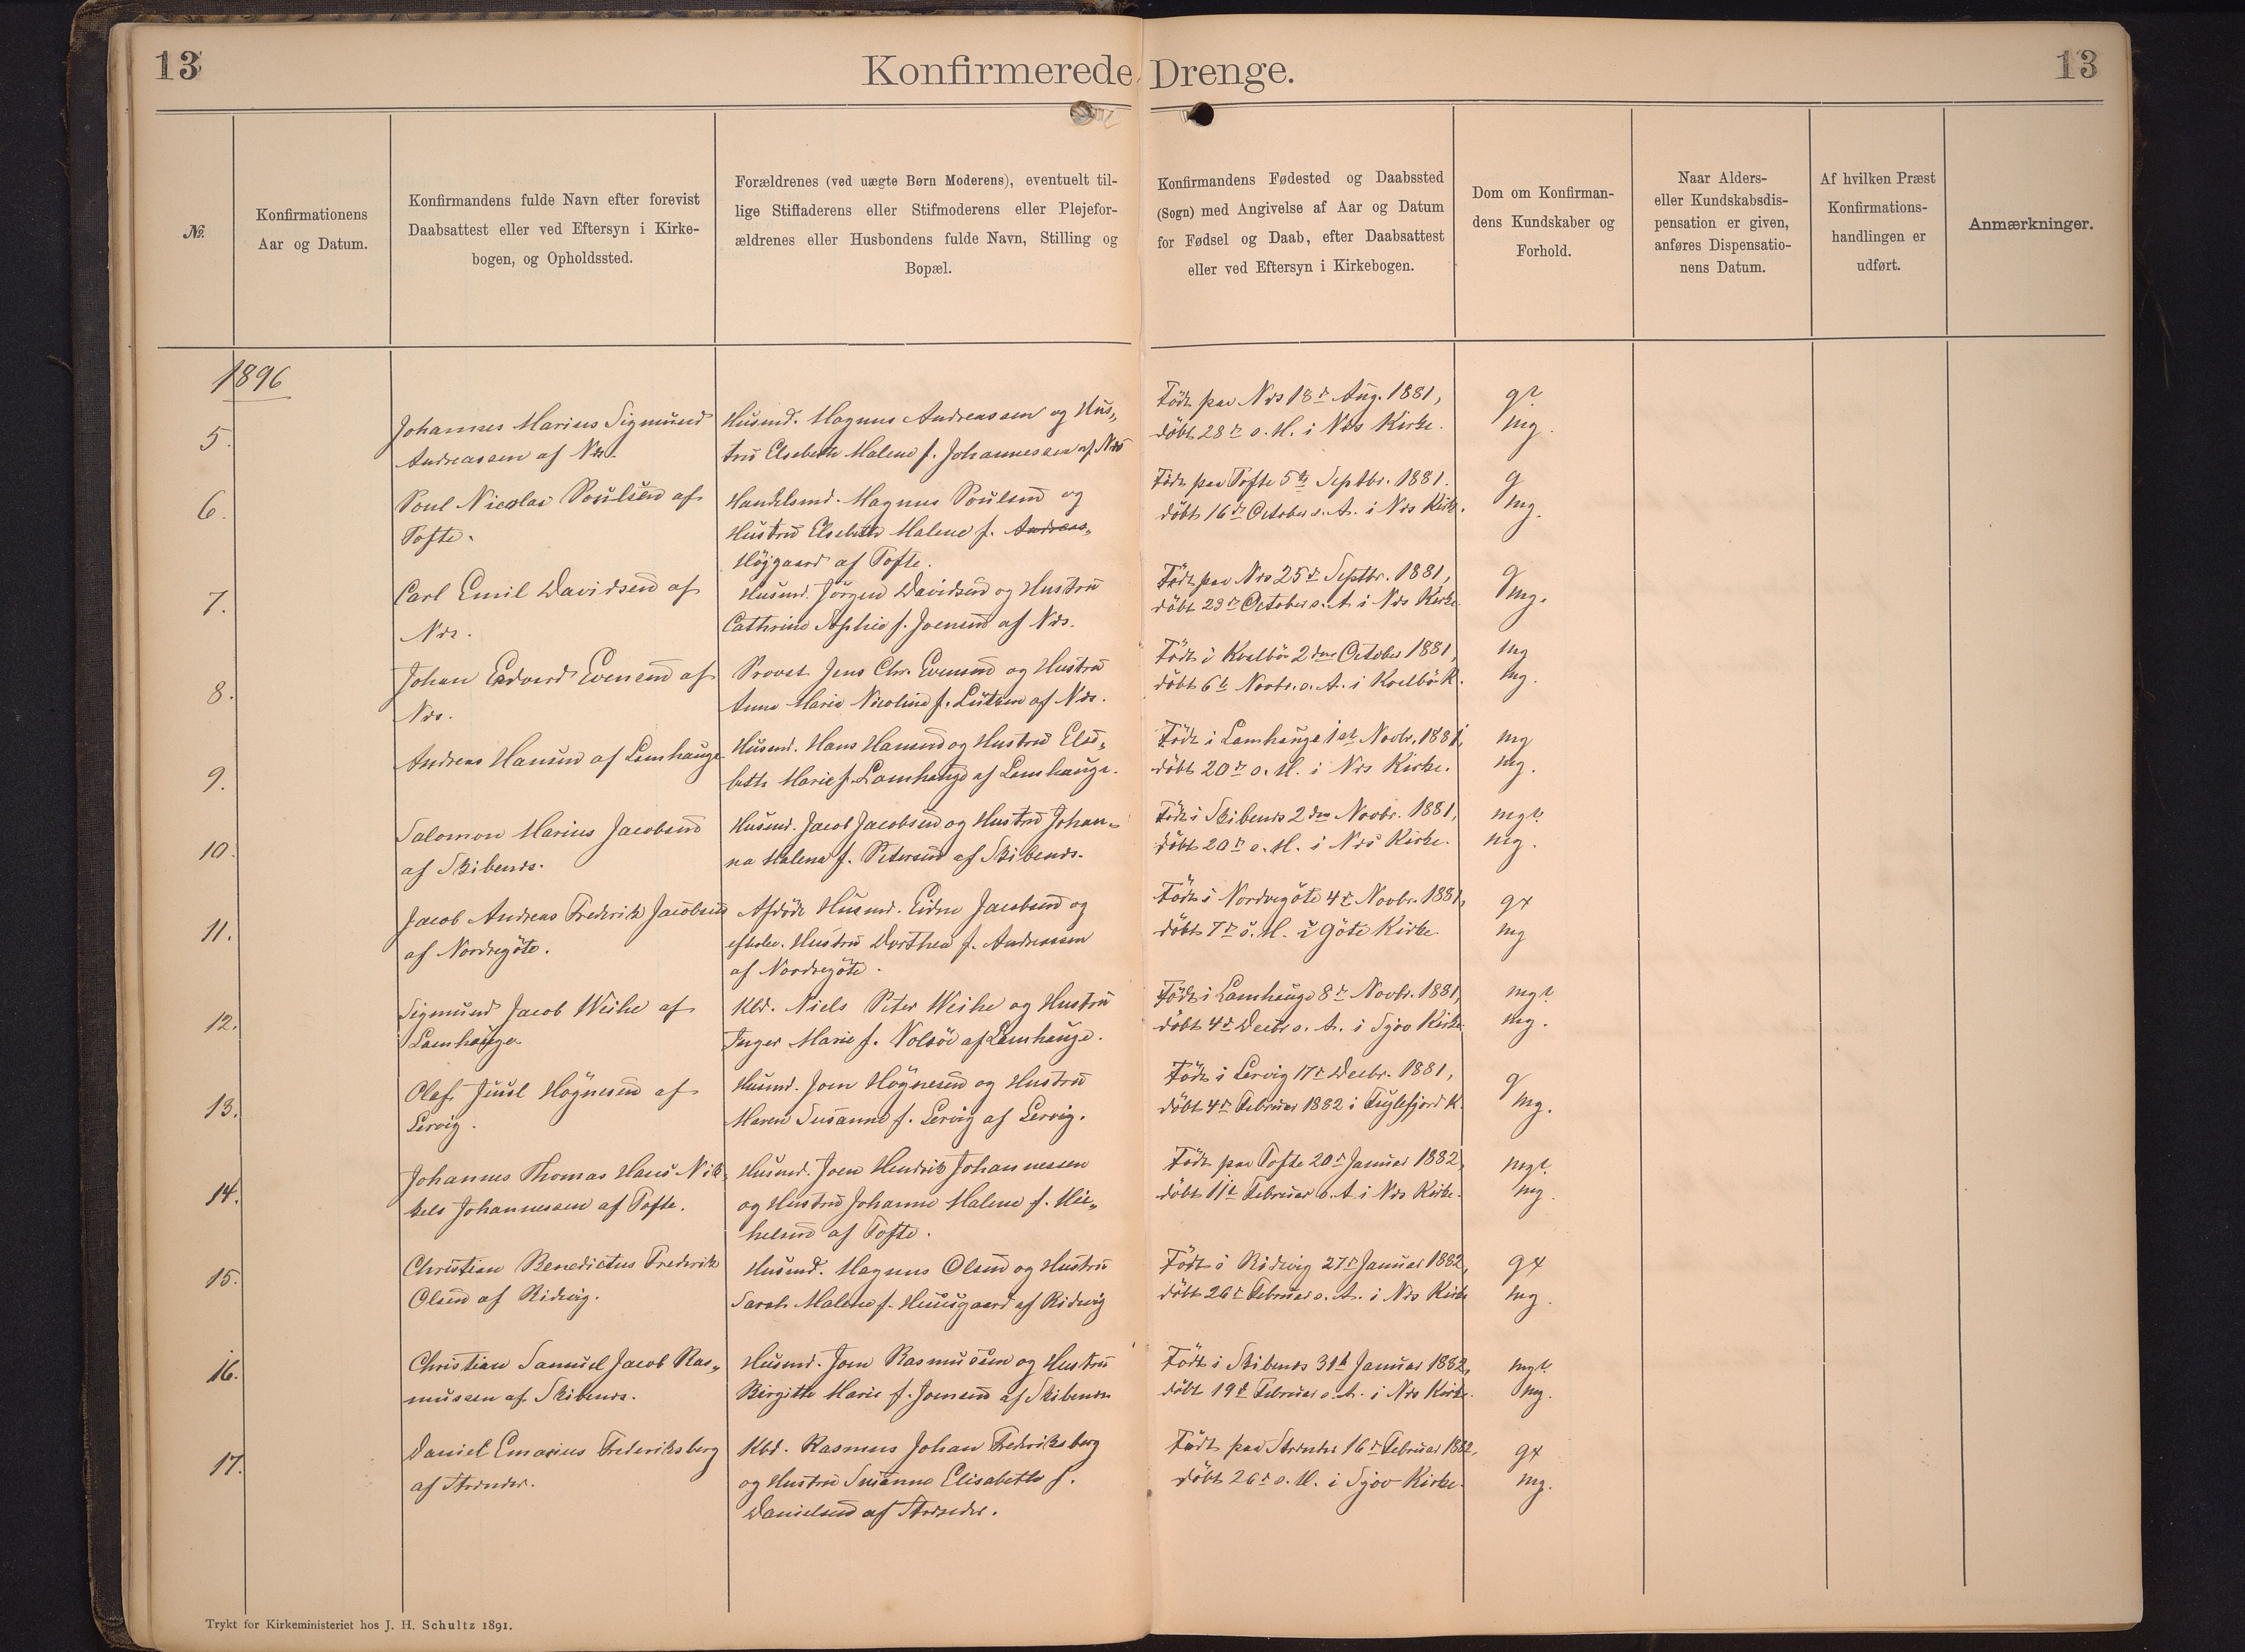 13
Konfirmerede Drenge.
13
№
Konfirmationens
Aar og Datum.
Konfirmandens fulde Navn efter forevist
Daabsattest eller ved Eftersyn i Kirke-
bogen, og Opholdssted.
Forældrenes (ved uægte Børn Moderens), eventuelt til-
lige Stiffaderens eller Stifmoderens eller Plejefor-
ældrenes eller Husbondens fulde Navn, Stilling og
Bopæl.
Konfirmandens Fødested og Daabssted
(Sogn) med Angivelse af Aar og Datum
for Fødsel og Daab, efter Daabsattest
eller ved Eftersyn i Kirkebogen.
Dom om Konfirman-
dens Kundskaber og
Forhold.
Naar Alders-
eller Kundskabsdis-
pensation er given,
anføres Dispensatio-
nens Datum.
Af hvilken Præst
Konfirmations-
handlingen er
udført.
Anmærkninger.
1896
5.
Johannes Marius Sigmund
Andreassen af Nes.
Husmd. Magnus Andreassen og Hus-
tru Elsebeth Malene f. Johannessen af Nes
Född paa Nes 18de Aug. 1881,
döbt 28de s. M. i Nes Kirke.
g?
mg.
6.
Poul Nicolai Poulsen af
Tofte.
Handelsmd. Magnus Poulsen og
Hustru Elsebeth Malene f. Andreas-
Höjgaard af Tofte.
Född paa Tofte 5te Septbr. 1881.
döbt 16de October s. A. i Nes Kirke.
g
mg.
7.
Carl Emil Davidsen af
Nes.
Husmd. Jörgen Davidsen og Hustru
Cathrine Sophie f. Joensen af Nes.
Född paa Nes 25de Septbr. 1881,
döbt 23de October s. A. i Nes Kirke
g
mg.
8.
Johan Edvard Evensen af
Nes.
Provst Jens Chr. Evensen og Hustru
Anna Marie Nicoline f. Lützen af Nes.
Född i Kvalbö 2den October 1881,
döbt 6te Novbr. s. A. i Kvalbö K.
mg
mg.
9.
Andreas Hansen af Lamhauge
Husmd. Hans Hansen og Hustru Else-
beth Marie f. Lamhauge af Lamhauge.
Född i Lamhauge 1st Novbr. 1881,
döbt 20de s. M. i Nes Kirke.
mg
mg.
10.
Salomon Marius Jacobsen
af Skibenes.
Husmd. Jacob Jacobsen og Hustru Johan-
na Malena f. Petersen af Skibenes.
Född i Skibenes 2den Novbr. 1881,
döbt 20de s. M. i Nes Kirke.
mg?
mg.
11.
Jacob Andreas Frederik Jacobsen
af Nordregöte.
Afdöde Husmd. Eidun Jacobsen og
efterlev. Hustru Dorthea f. Andreassen
af Nordregöte.
Född i Nordregöte 4de Novbr. 1881,
döbt 7de s. M. i Göte Kirke
g+
mg
12.
Sigmund Jacob Weihe af
Lamhauge
Kbd. Niels Peter Weihe og Hustru
Inger Marie f. Nolsöe af Lamhauge.
Född i Lamhauge 8de Novbr. 1881,
döbt 4de Decbr s. A. i Sjov Kirke.
mg?
mg.
13.
Olaf Juul Högnesen af
Lervig.
Husmd. Joen Högnesen og Hustru
Maren Susanne f. Lervig af Lervig.
Född i Lervig 17de Decbr. 1881,
döbt 4de Februar 1882 i Fuglefjord K.
g
mg.
14.
Johannes Thomas Hans Nik-
kels Johannessen af Tofte.
Husmd. Joen Hendrik Johannessen
og Hustru Johanne Malene f. Mic-
helsen af Tofte.
Född paa Tofte 20de Januar 1882,
döbt 11te Februar s. A. i Nes Kirke.
mg?
mg.
15.
Christian Benedictus Frederik
Olsen af Ridevig.
Husmd. Magnus Olsen og Hustru
Sarah Malene f. Huusgaard af Ridevig
Född i Ridevig 27de Januar 1882,
döbt 26de Februar s. A. i Nes Kirke
g+
mg.
16.
Christian Samuel Jacob Ras-
mussen af Skibenes.
Husmd. Joen Rasmussen og Hustru
Birgitte Marie f. Joensen af Skibenes
Född i Skibenes 31te Januar 1882,
döbt 19de Februar s. A. i Nes Kirke.
mg?
mg.
17.
Daniel Emarius Frederiksberg
af Strender.
Kbd. Rasmus Johan Frederiksberg
og Hustru Susanne Elisabeth f.
Danielsen af Strender.
Född paa Strender 16de Februar 1882,
döbt 26de s. M. i Sjov Kirke.
g+
mg.
Trykt for Kirkeministeriet hos J. H. Schultz 1891.